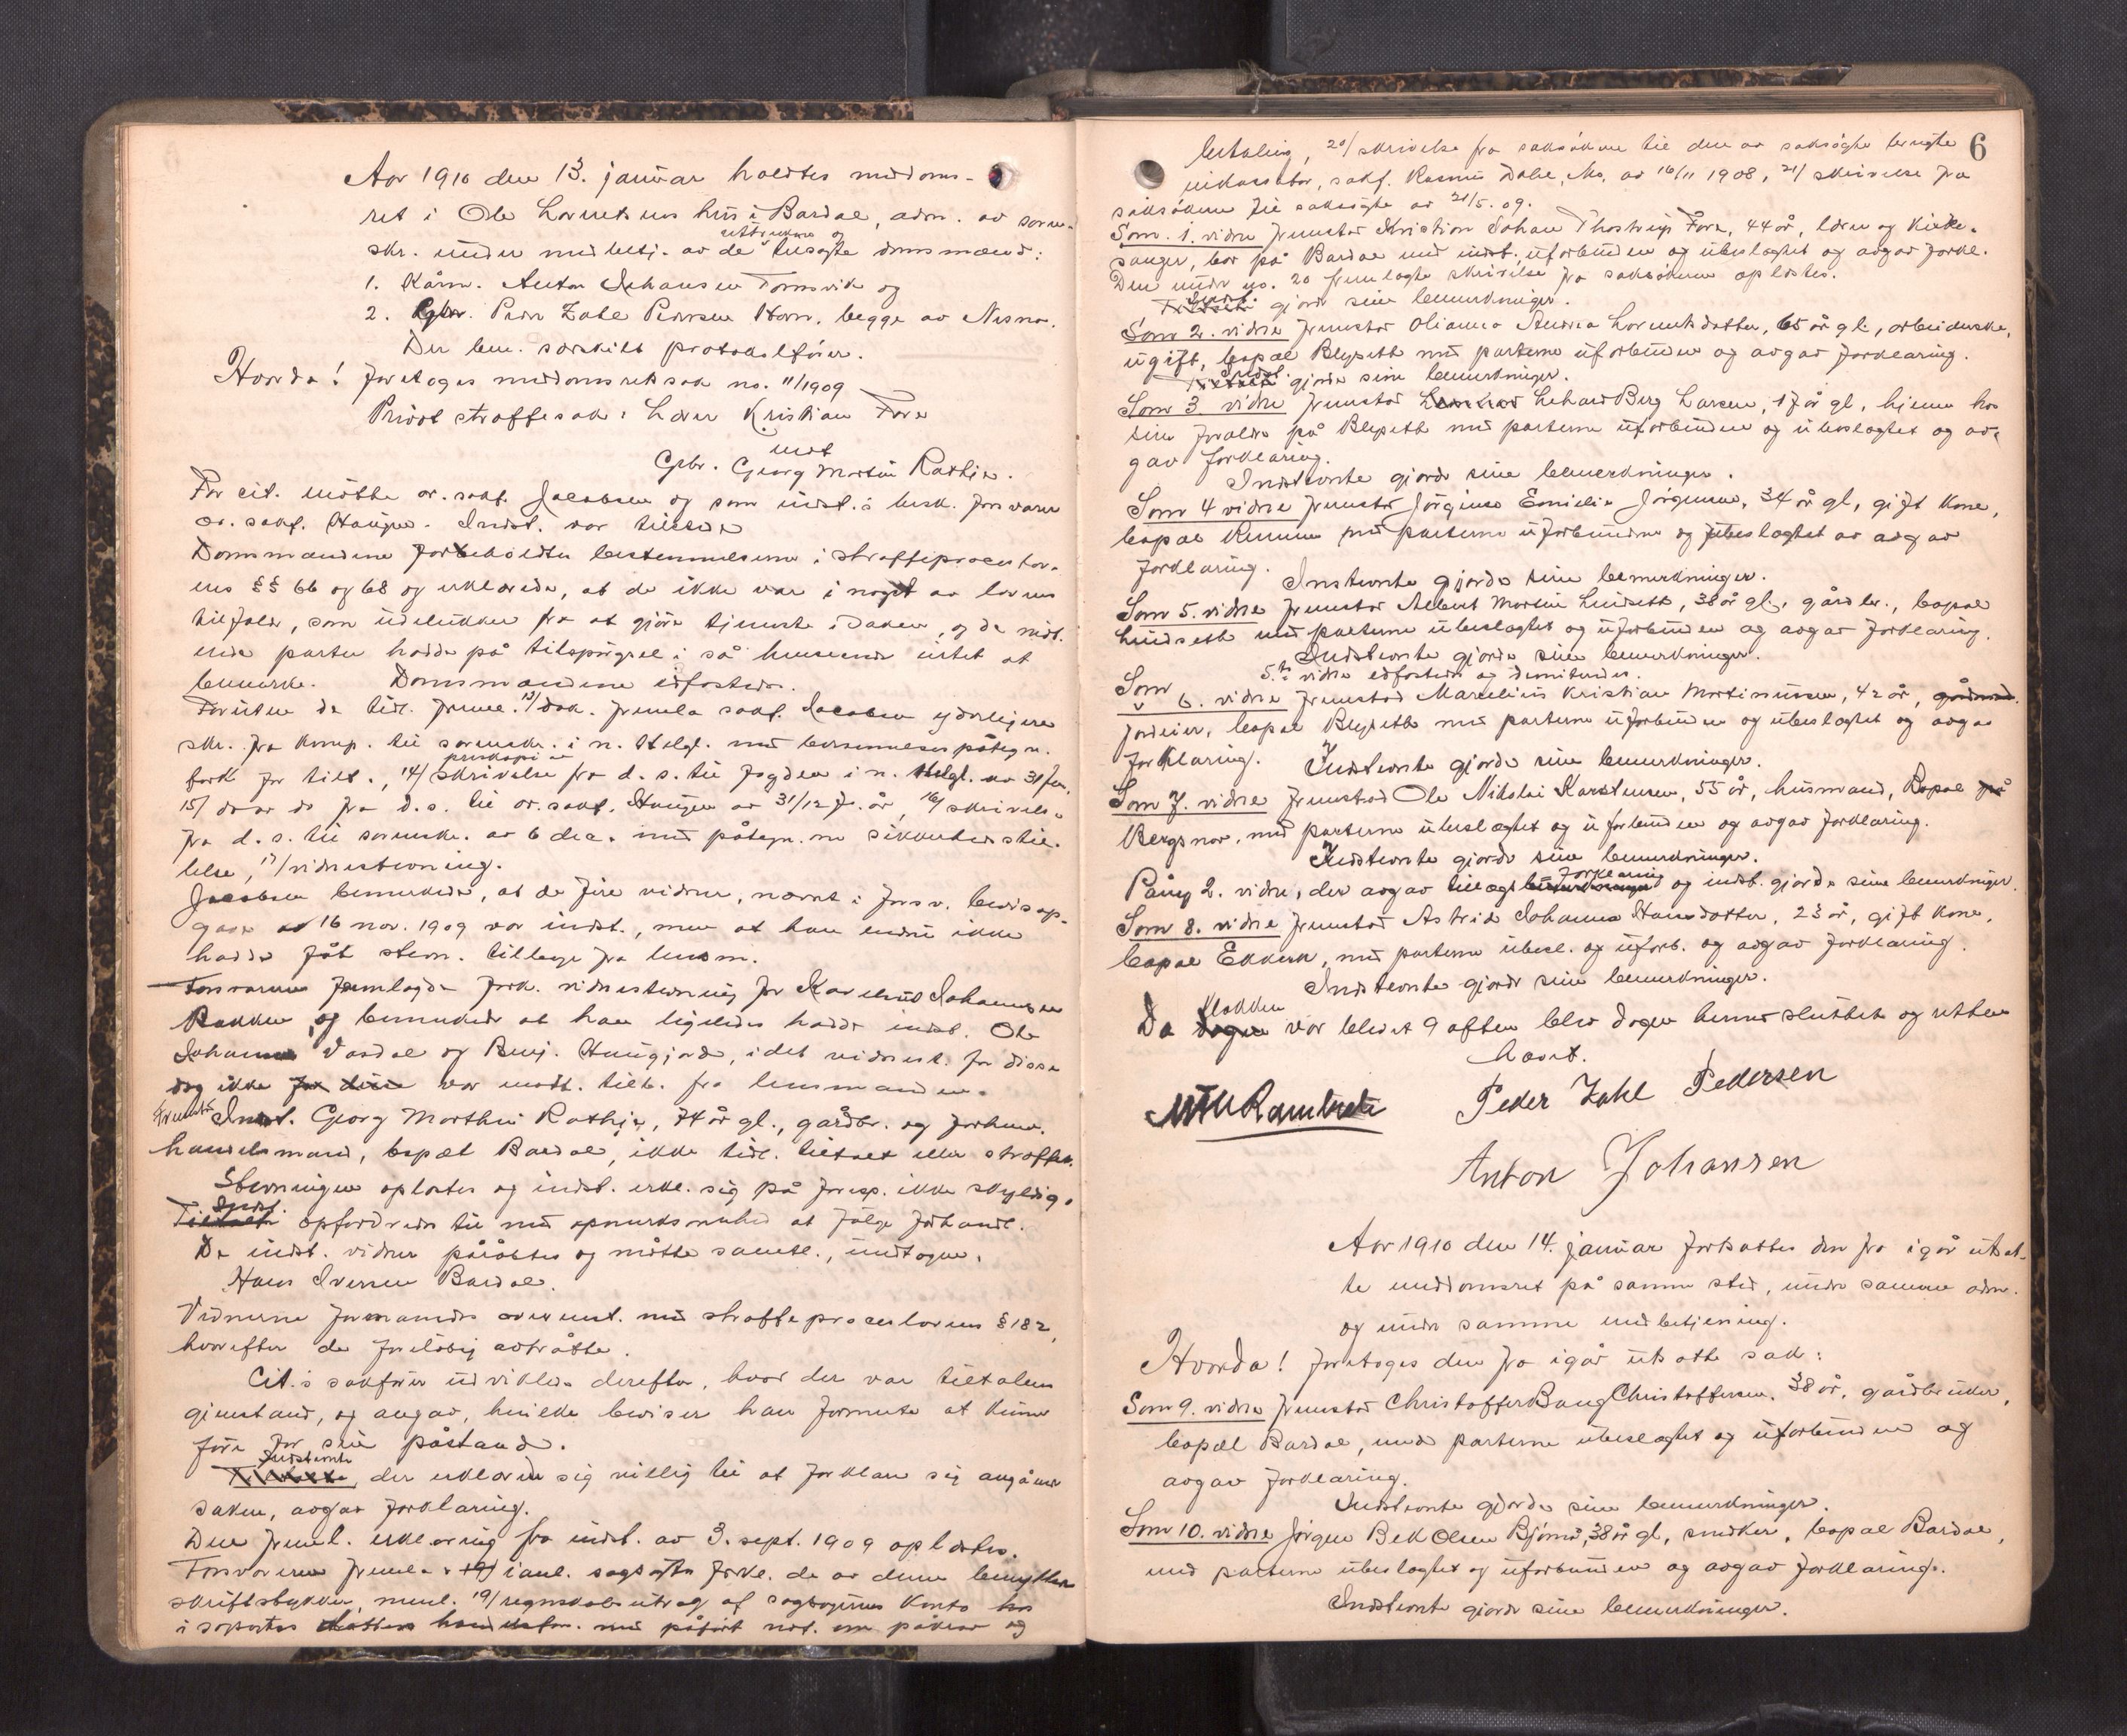 Aar 1910 den 13. januar holdtes meddoms-
ret i Ole Lorentsens hus i Bardal, adm. av soren-
skr. under medbetj. av de uttrukne og tilsagte domsmænd:
1. Kårm. Anton Johansen Tomsvik og
2. Gbr. Peder Zahl Pedersen Horn, begge av Nesna.
Der ben. særskilt protokolfører.
Hvorda! foretoges meddomsretsak no. 11/1909
Privat straffesak: Lærer Kristian Forr
mot
Gbr. Georg Martin Rathje.
For cit. møtte or. sakf. Jacobsen og som indst.s besk. forsvarer
or. sakf. Haugen. Indst. var tilstede
Domsmændene forbeholdtes bestemmelserne i straffeproceslov-
ens §§ 66 og 68 og erklærede, at de ikke var i noget av lovens
tilfælde, som udelukker fra at gjøre tjeneste i saken, og de møt-
ende parter hadde på tilspørgsel i så henseende intet at
bemerke. Domsmændene edfæstedes.
Foruten de tidl. freml. 13/ dok. fremla sakf. Jacobsen yderligere
skr. fra komp. til sorenskr. i n. Helgl. med berammelsespåtegn.
fork. for tilt., 14/ genkopi av skrivelse fra d. s. til fogden i n. Helgl. av 31 jan.
15/ do av do fra d. s. til or. sakf. Haugen av 31/12 f. år, 16/ skrivelse
fra d. s. til sorenskr. av 6 dec. med påtegn. om sikkerhedsstil-
lelse, 17/ vidnestevning.
Jacobsen bemerkede, at de fire vidner, nævnt i forsv. bevisop-
gave av 16 nov. 1909 var indst., men at han endnu ikke
hadde fåt stevn. tilbage fra lensm.
Forsvareren fremlagde fork. vidnestevning for Karelius Johansen
Bakken, og bemerkede at han ligeledes hadde indst. Ole
Johansen Vardal og Benj. Haugjorde, idet vidnest. for disse
dog ikke for disse var modt. tilb. fra lensmanden.
Fremstod Indst. Georg Morthin Rathje, 74 år gl., gårdbr. og forhenv.
handelsmand, bopæl Bardal, ikke tidl. tiltalt eller straffet.
Stevningen oplæstes og indst. erkl. sig på foresp. ikke skyldig.
Tiltalte Indst. opfordredes til med opmerksomhed at følge forhandl.
De indst. vidner påråbtes og møtte samtl., undtagen,
Hans Iversen Bardal.
Vidnerne formanedes overenst. med straffeproceslovens § 182,
hvorefter de foreløbig avtrådte.
Cit.s sakfører udviklede derefter, hvad der var tiltalens
gjenstand, og angav, hvilke beviser han formente at kunne
føre for sin påstand.
Indstevnte der erklærede sig villig til at forklare sig angående
saken, avgav forklaring.
Den freml. erklæring fra indst. av 3. sept. 1909 oplæstes.
Forsvareren fremla 18/ i anl. sagsøgte fork. de av denne benyttede
skriftstykker, neml. 19/ regnskabsutdrag af sagsøgernes konto hos
i sagsøgtes datters handelsforr. med påført not. om påkrav og
6
betaling, 20/ skrivelse fra saksøkeren til den av saksøgte benyttede
inkassator, sakf. Rasmus Dahl, Mo, av 16/11 1908, 21/ skrivelse fra
saksøkeren til saksøgte av 21/5. 09.
Som 1. vidne fremstod Kristian Johan Thostrup Forr, 44 år, lærer og kirke-
sanger, bor på Bardal med indst. uforbunden og ubeslægtet og avgav forkl.
Den under no. 20 fremlagte skrivelse fra saksøkeren oplæstes.
Tiltalte Indst. gjorde sine bemerkninger.
Som 2. vidne fremstod Olianna Andrea Lorentsdatter, 65 år gl., arbeiderske,
ugift, bopæl Blyseth med parterne uforbunden og avgav forklaring.
Tiltalte Indst. gjorde sine bemerkninger.
Som 3 vidne fremstod Lehard Berg Larsen, 17 år gl, hjemme hos
sine forældre på Blyseth med parterne uforbunden og ubeslægtet og av-
gav forklaring.
Indstevnte gjorde sine bemerkninger.
Som 4 vidne fremstod Jørgine Emilie Jørgensen, 34 år gl, gift kone,
bopæl Remmen med parterne uforbunden og ubeslægtet av avgav
forklaring.
Instevnte gjorde sine bemerkninger.
Som 5. vidne fremstod Albert Martin Lindseth, 38 år gl., gårdbr., bopæl
Lindseth med parterne ubeslægtet og uforbunden og avgav forklaring.
Indstevnte gjorde sine bemerkninger.
5.te vidne edfæstedes og dimiteredes.
Som 6. vidne fremstod Marselius Kristian Martinussen, 42 år, gårdmd.
jordeier, bopæl Blyseth med parterne uforbunden og ubeslægtet og avgav
forklaring. Indstevnte gjorde sine bemerkninger.
Som 7. vidne fremstod Ole Nikolai Karstensen, 55 år, husmand, bopæl på
Bergsnov, med parterne ubeslægtet og uforbunden og avgav forklaring.
Indstevnte gjorde sine bemerkninger.
Påny 2. vidne, der avgav tillægsforklaring og indst. gjorde sine bemerkninger.
Som 8. vidne fremstod Astrid Johanna Hansdatter, 23 år, gift kone,
bopæl Ekkern, med parterne ubesl. og uforb. og avgav forklaring.
Indstevnte gjorde sine bemerkninger.
Da dagen klokken var blevet 9 aften blev dagen hermed sluttet og retten
hævet.
Peder Zahl Pedersen
Anton Johansen
Aar 1910 den 14. januar fortsattes den fra igår utsat-
te meddomsret på samme sted, under samme adm.
og under samme medbetjening.
Hvorda! foretoges den fra igår utsatte sak:
Som 9. vidne fremstod Christoffer Bang Christoffersen, 38 år, gårdbruker,
bopæl Bardal, med parterne ubeslægtet og uforbunden og
avgav forklaring.
Indstevnte gjorde sine bemerkninger.
Som 10. vidne Jørgen Bek Olsen Bjørnå, 38 år gl, snekker, bopæl Bardal,
med parterne ubeslægtet og uforbunden og avgav forklaring.
Indstevnte gjorde sine bemerkninger.